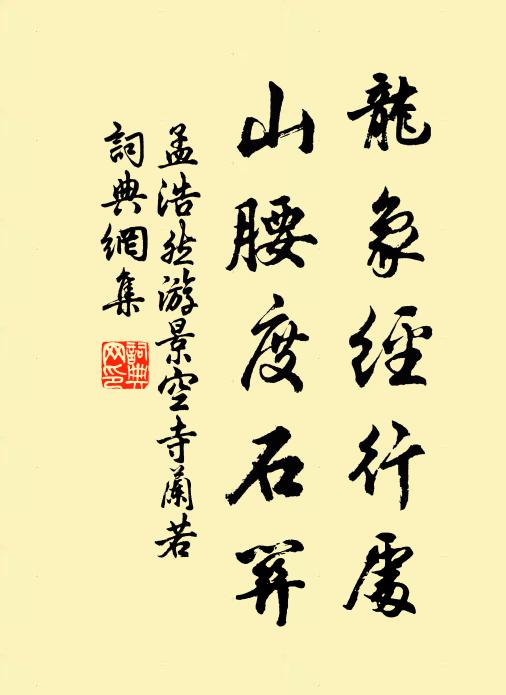 龍象經行處
山腰度石關
孟浩然游景空寺蘭若
詞典網集
詞典网印